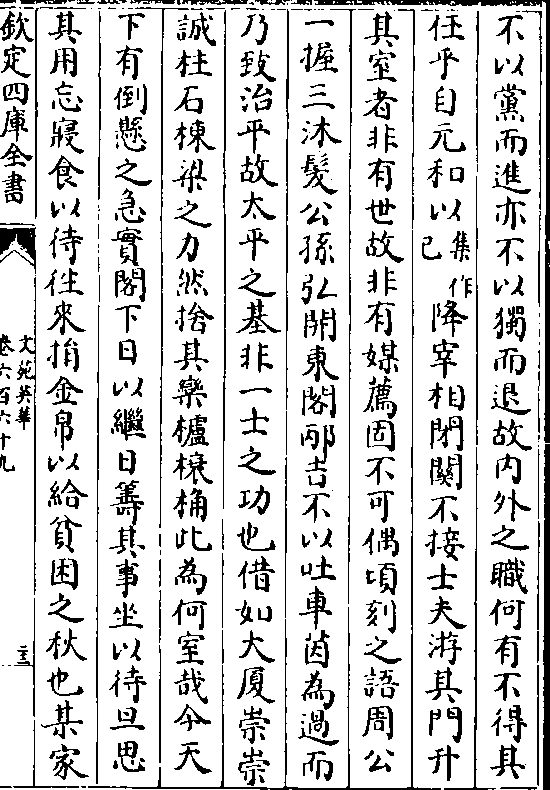 不以黨而進亦不以獨而退故内外之職何有不得其
任乎自元和以集作已降宰相閉關不接士夫游其門升
其室者非有世故非有媒薦固不可偶頃刻之語周公
一握三沐髮公孫弘開東閣邴吉不以吐車茵為過而
乃致治平故太平之基非一士之功也借如大厦崇崇
誠柱石棟梁之力然捨其欒櫨榱桷此為何室哉今天
下有倒懸之急實閣下日以繼日籌其事坐以待旦思
其用忘寢食以待徃來捐金帛以給貧困之秋也某家
欽定四庫全書
文苑英華
卷六百六十九
二十三